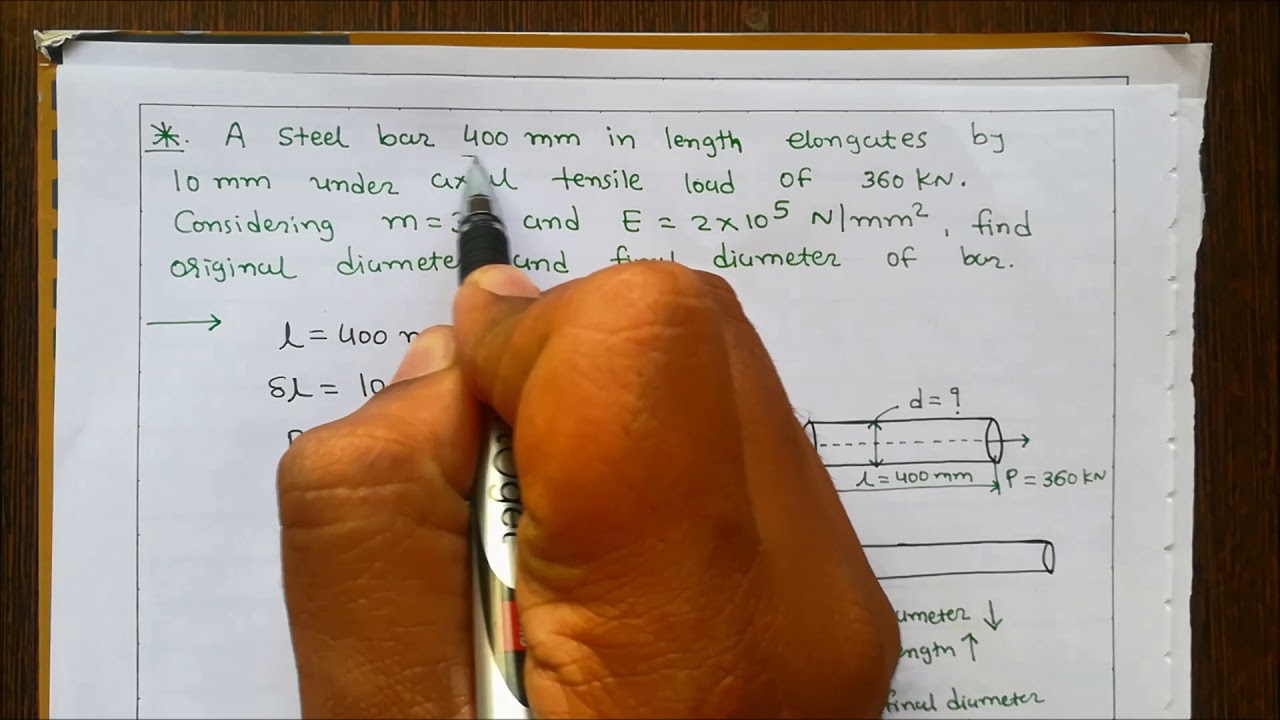 *. A steel bar 400 mm in length elongates by
10 mm under tensile load of 360 KN.
Considering m = and E = 2×10⁵ N/mm², find
original and diameter of bar.
l = 400
δl = 10
d = ?
l = 400 mm
P = 360 KN
↓
↑
final diameter